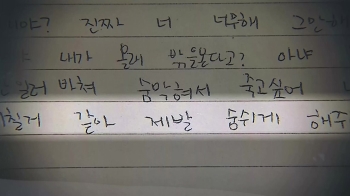 야? 진짜 너 너무해 그만해
내가 몰래 밖을본다고? 아냐
바쳐 숨막혀서 죽고싶어
칠거 같아 제발 숨쉬게 해주